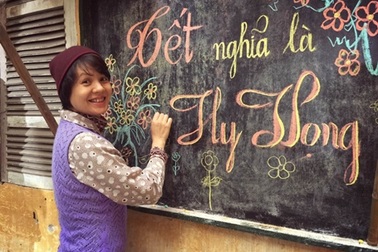 Tết nghĩa là
Hy Vọng